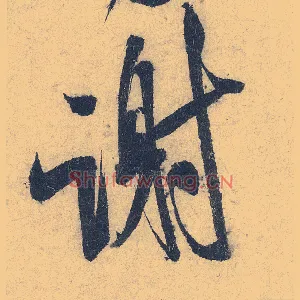 谢
Shufawang.CN